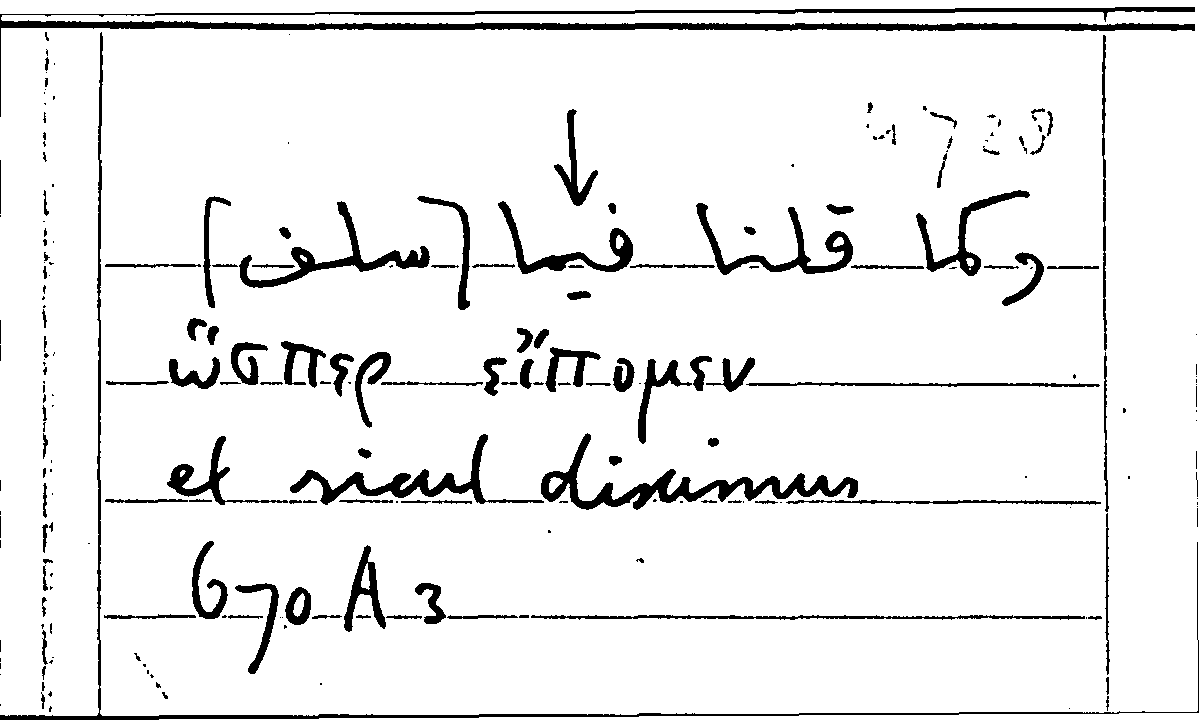 4728
↓
وكما قلنا فيما [سلف]
ὥσπερ εἴπομεν
et sicut diximus
670 A 3